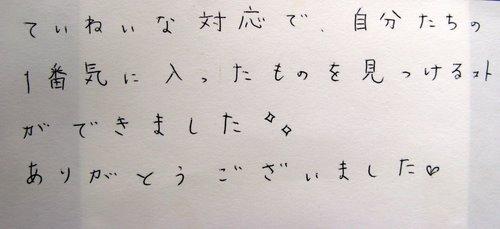 ていねいな対応で、自分たちの
1番気に入ったものを見つけるコト
ができました✧✧
ありがとうございました♡